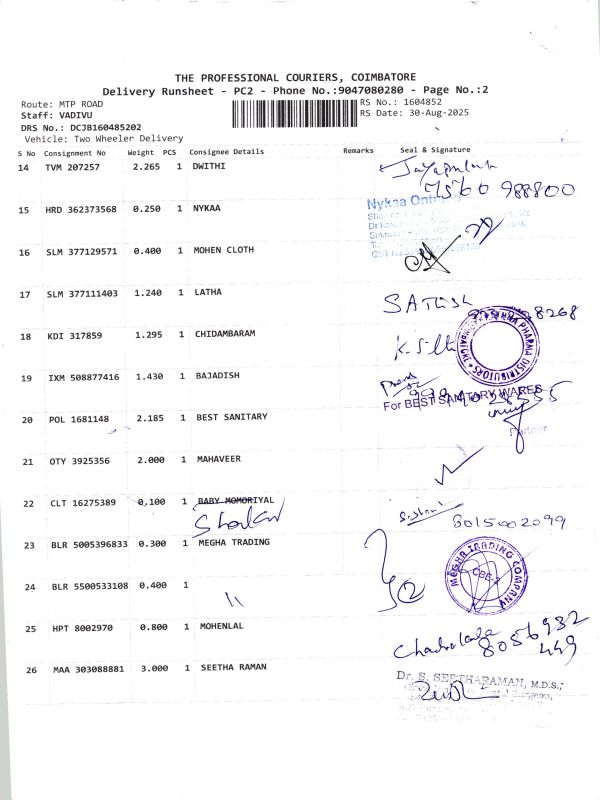 THE PROFESSIONAL COURIERS, COIMBATORE
Delivery Runsheet - PC2 - Phone No.:9047080280 - Page No.:2
Route: MTP ROAD
RS No.: 1604852
Staff: VADIVU
RS Date: 30-Aug-2025
DRS No.: DCJB160485202
Vehicle: Two Wheeler Delivery
S No Consignment No Weight PCS Consignee Details Remarks Seal & Signature
14 TVM 207257 2.265 1 DWITHI
988800
15 HRD 362373568 0.250 1 NYKAA
Nykaa
16 SLM 377129571 0.400 1 MOHEN CLOTH
17 SLM 377111403 1.240 1 LATHA
SATHISH
8268
18 KDI 317859 1.295 1 CHIDAMBARAM
PHARMA DISTRIBUTORS
19 IXM 508877416 1.430 1 BAJADISH
For BEST SANITARY WARES
20 POL 1681148 2.185 1 BEST SANITARY
Partner
21 OTY 3925356 2.000 1 MAHAVEER
22 CLT 16275389 0,100 1 BABY MOMORIYAL
8015002099
23 BLR 5005396833 0.300 1 MEGHA TRADING
MEGHA TRADING COMPANY
CBE-2
24 BLR 5500533108 0.400 1
25 HPT 8002970 0.800 1 MOHENLAL
8056932
449
26 MAA 303088881 3.000 1 SEETHA RAMAN
Dr. S. SEETHARAMAN, M.D.S.,